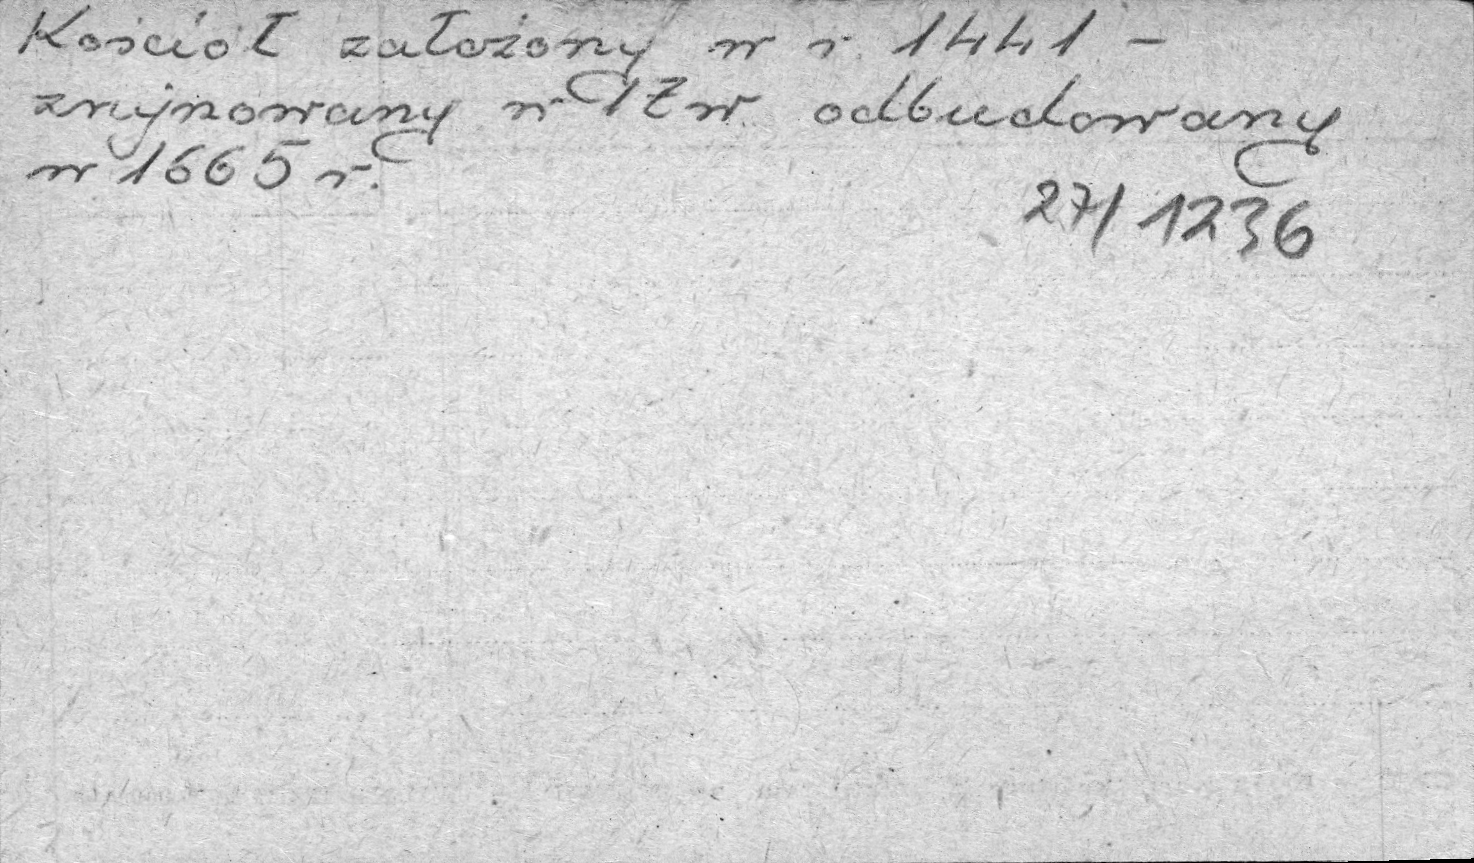 Kościół założony w r. 1441 –
zrujnowany w 17 w. odbudowany
w 1665 r.
27/1236